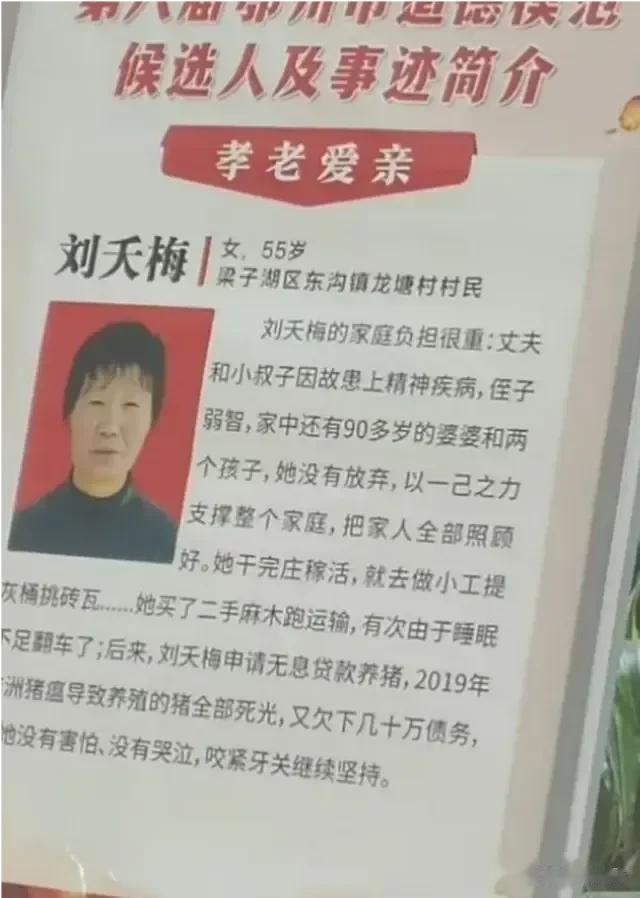 第八届鄂州市道德模范
候选人及事迹简介
孝老爱亲
刘天梅
女，55岁
梁子湖区东沟镇龙塘村村民
刘天梅的家庭负担很重：丈夫
和小叔子因故患上精神疾病，侄子
弱智，家中还有90多岁的婆婆和两
个孩子，她没有放弃，以一己之力
支撑整个家庭，把家人全部照顾
好。她干完庄稼活，就去做小工提
灰桶挑砖瓦......她买了二手麻木跑运输，有次由于睡眠
不足翻车了；后来，刘天梅申请无息贷款养猪，2019年
洲猪瘟导致养殖的猪全部死光，又欠下几十万债务，
她没有害怕、没有哭泣，咬紧牙关继续坚持。